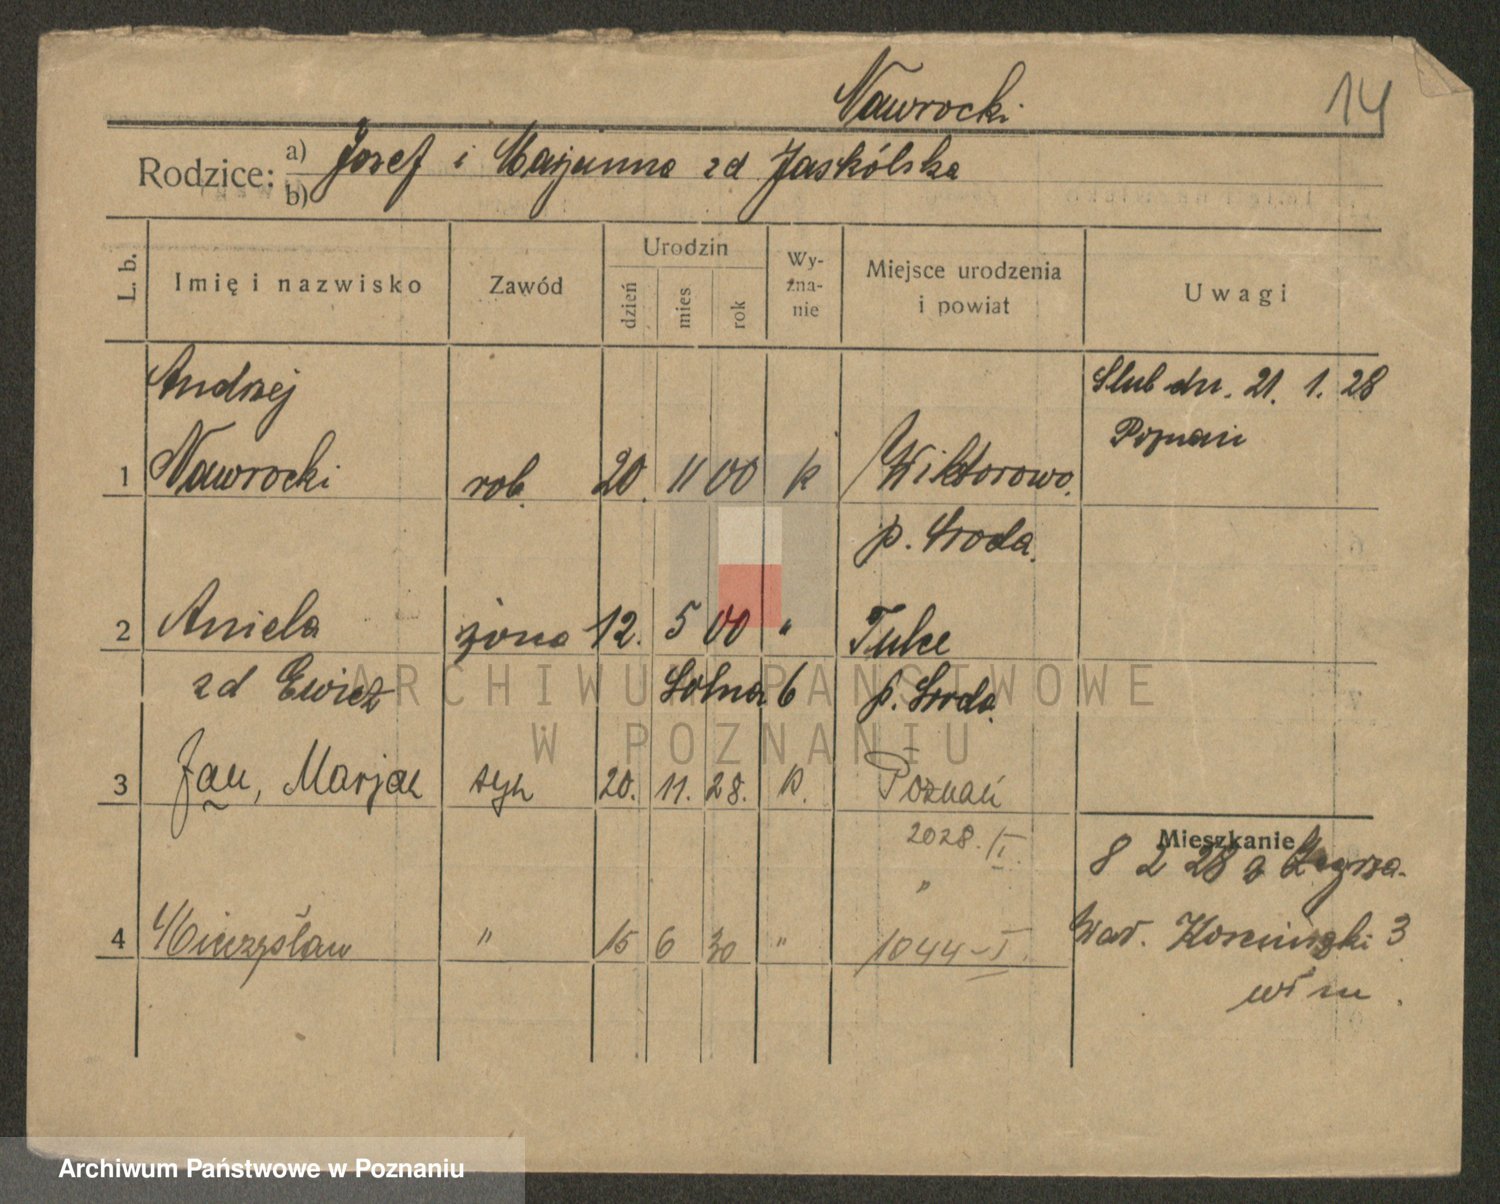 Nawrocki
14
Rodzice: a) Józef i Marjanna zd Jaskólska
b)
L. b.
Imię i nazwisko
Zawód
Urodzin
dzień
mies
rok
Wy-
zna-
nie
Miejsce urodzenia
i powiat
Uwagi
Andrzej
Ślub dn. 21. 1. 28
Poznań
1 Nawrocki rob. 20. 11 00 k Wiktorowo
p. Środa.
2 Aniela żona 12. 5 00 " Tulce
zd Ewicz Solna 6 p. Środa.
3 Jan, Marjan syn 20. 11. 28. k. Poznań
2028. I
Mieszkanie
8 2 28 z Zegrza.
"
4 Mieczysław " 15 6 30 " 1044-I.
Wał. 3
ARCHIWUM PAŃSTWOWE
W POZNANIU
Archiwum Państwowe w Poznaniu